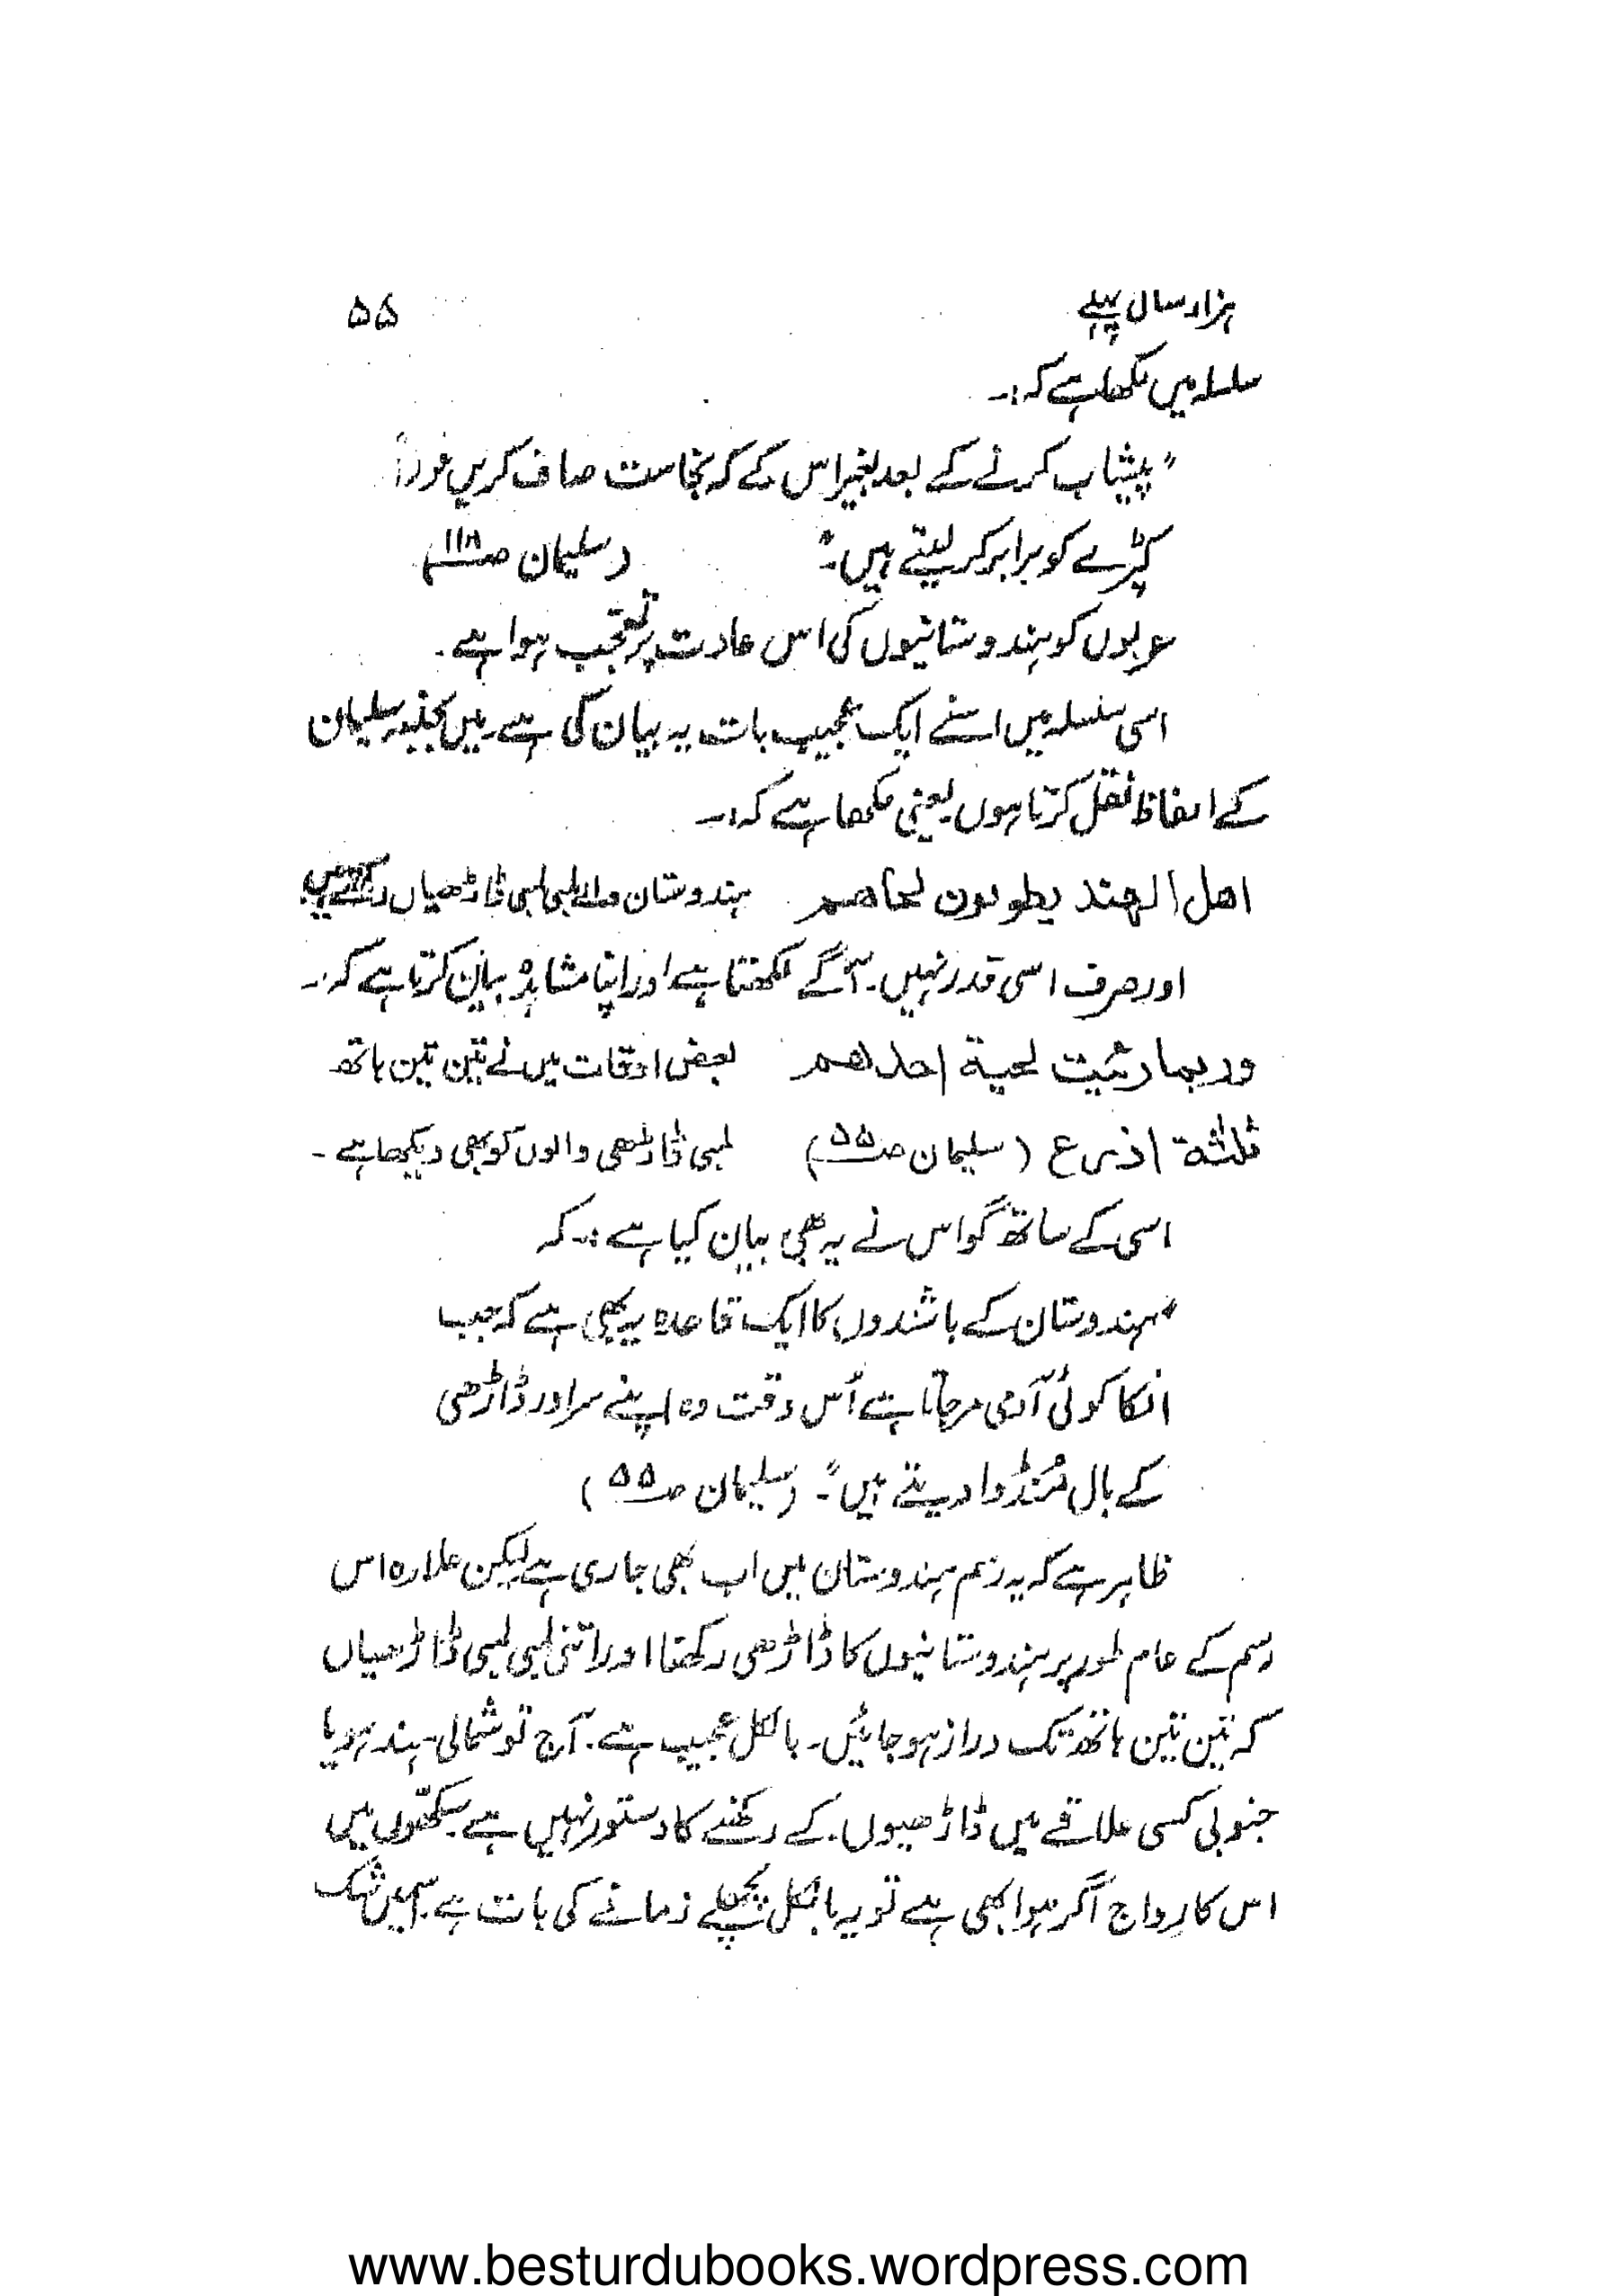 ہزار سال پہلے ۵۵
سلسلہ میں لکھا ہے کہ:۔
"پیشاب کرنے کے بعد بغیر اس کے کہ نجاست صاف کریں فوراً
کپڑے کو برابر کر لیتے ہیں۔" (سلیمان صـ۱۱۸)
عربوں کو ہندوستانیوں کی اس عادت پر تعجب ہوا ہے۔
اسی سلسلہ میں اسنے ایک عجیب بات یہ بیان کی ہے۔ میں بجنسہٖ سلیمان
کے الفاظ نقل کرتا ہوں یعنی لکھا ہے کہ:۔
اهل الهند يطولون لحاهم ہندوستان والے لمبی لمبی ڈاڑھیاں رکھتے ہیں
اور صرف اسی قدر نہیں۔ آگے لکھتا ہے اور اپنا مشاہدہ بیان کرتا ہے کہ:۔
وربما رئيت لحية احدهم بعض اوقات میں نے تین تین ہاتھ
ثلثة اذرع (سلیمان صـ۵۵) لمبی ڈاڑھی والوں کو بھی دیکھا ہے۔
اسی کے ساتھ گو اس نے یہ بھی بیان کیا ہے:۔ کہ
"ہندوستان کے باشندوں کا ایک قاعدہ یہ بھی ہے کہ جب
انکا کوئی آدمی مرجاتا ہے اُس وقت وہ اپنے سر اور ڈاڑھی
کے بال مُنڈوا دیتے ہیں"۔ (سلیمان صـ۵۵)
ظاہر ہے کہ یہ رسم ہندوستان میں اب بھی جاری ہے لیکن علاوہ اس
رسم کے عام طور پر ہندوستانیوں کا ڈاڑھی رکھنا اور اتنی لمبی لمبی ڈاڑھیاں
کہ تین تین ہاتھ تک دراز ہو جائیں۔ بالکل عجیب ہے۔ آج تو شمالی ہند ہو یا
جنوبی کسی علاقے میں ڈاڑھیوں کے رکھنے کا دستور نہیں ہے۔ سکھوں میں
اس کا رواج اگر ہوا بھی ہے تو یہ بالکل پچھلے زمانے کی بات ہے۔ اسمیں شک
www.besturdubooks.wordpress.com